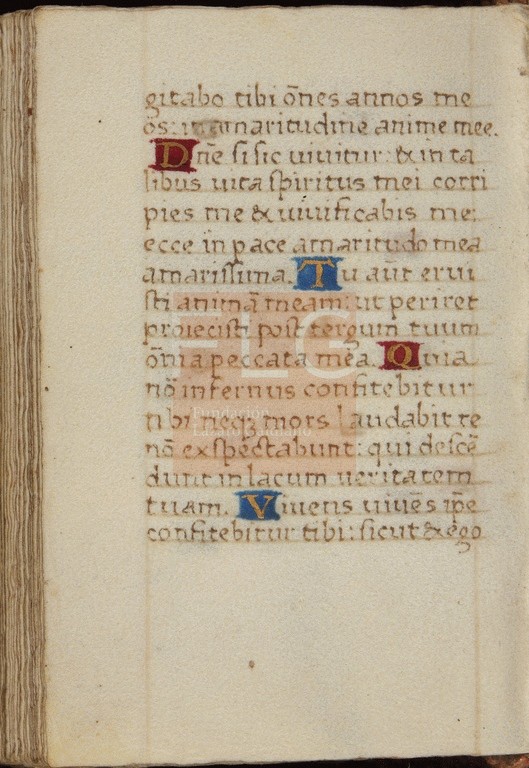 gitabo tibi oñes annos me
os: in amaritudine anime mee.
Dñe si sic uiuitur: & in ta
libus uita spiritus mei corri
pies me & uiuificabis me:
ecce in pace amaritudo mea
amarissima. Tu aut̄ erui
sti animā meam: ut periret
proiecisti post tergum tuum
oñia peccata mea. Quia
nō infernus confitebitur
tibi neq; mors laudabit te
nō exspectabunt: qui descē
dunt in lacum ueritatem
tuam. Viuens uiuēs ip̄e
confitebitur tibi: sicut & ego
FLG
Fundación
Lázaro Galdiano